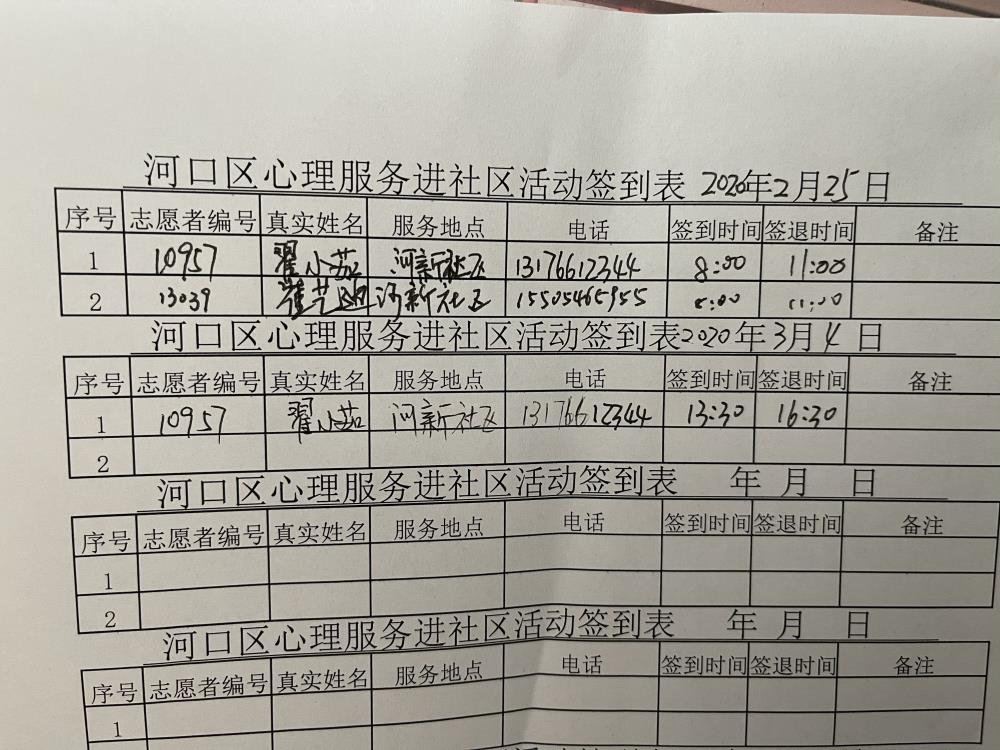 河口区心理服务进社区活动签到表 2020年2月25日
序号 志愿者编号 真实姓名 服务地点 电话 签到时间 签退时间 备注
1 10957 翟小茹 河新社区 13176612344 8:00 11:00
2 13039 河新社区 15505465955 8:00 11:00
河口区心理服务进社区活动签到表2020年3月4日
序号 志愿者编号 真实姓名 服务地点 电话 签到时间 签退时间 备注
1 10957 翟小茹 河新社区 13176612344 13:30 16:30
2
河口区心理服务进社区活动签到表 年 月 日
序号 志愿者编号 真实姓名 服务地点 电话 签到时间 签退时间 备注
1
2
河口区心理服务进社区活动签到表 年 月 日
序号 志愿者编号 真实姓名 服务地点 电话 签到时间 签退时间 备注
1